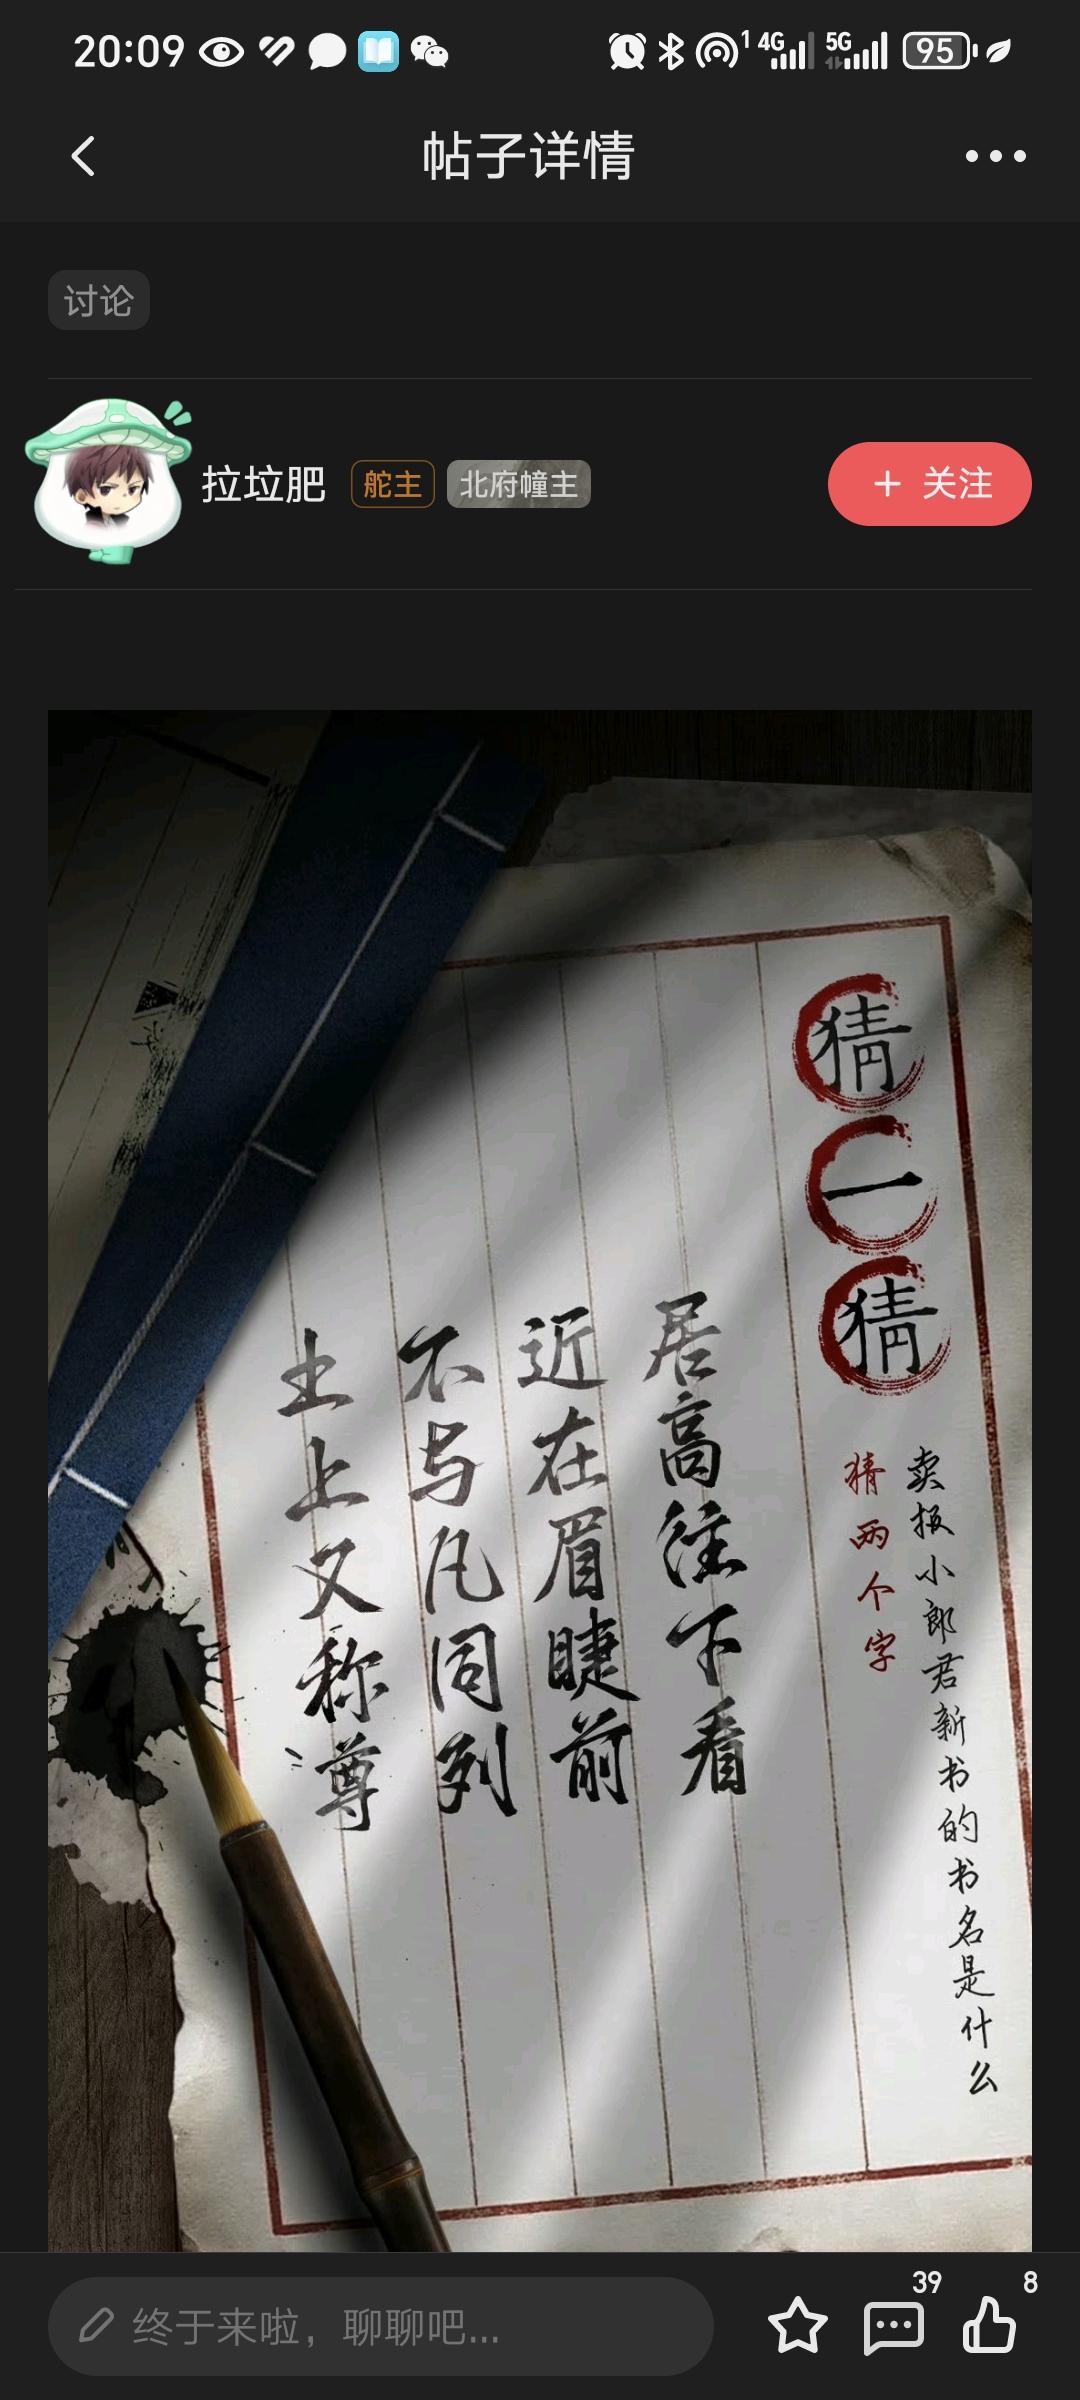 20:09
1 4G 5G 95
帖子详情
讨论
拉垃肥 舵主 北府幢主
+ 关注
猜一猜
卖报小郎君新书的书名是什么
猜两个字
居高往下看
近在眉睫前
不与凡同列
土上又称尊
终于来啦，聊聊吧...
39
8